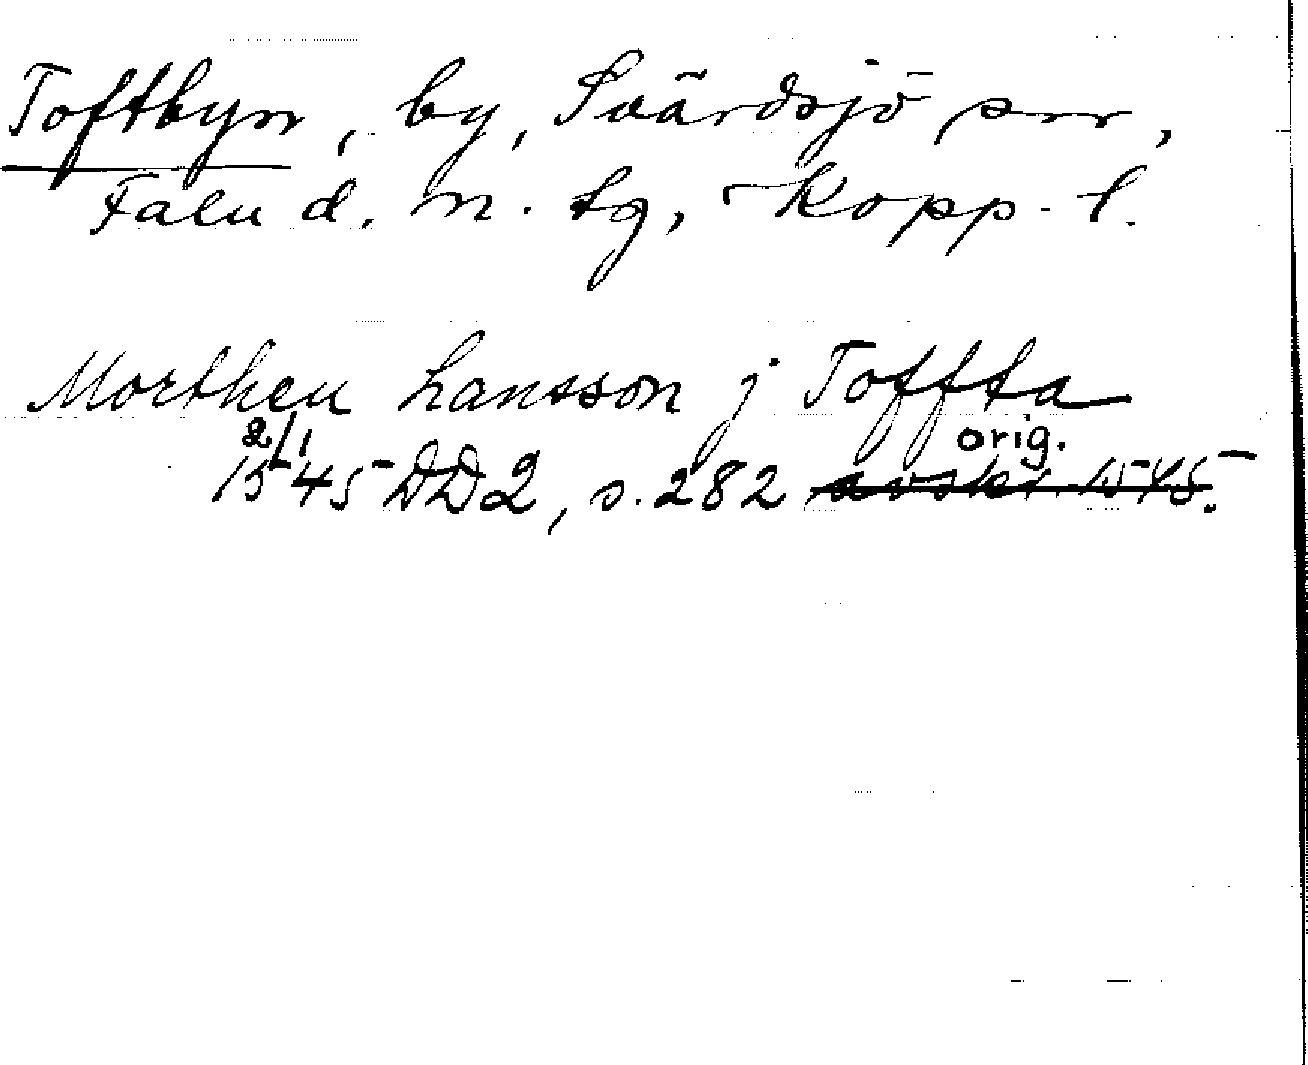 Toftbyn, by, Svärdsjö sn,
Falu d. n. tg, Kopp. l.
Morthen Lansson j Toffta
2/1 orig.
1545 DD2, s. 282 avskr. 1545.